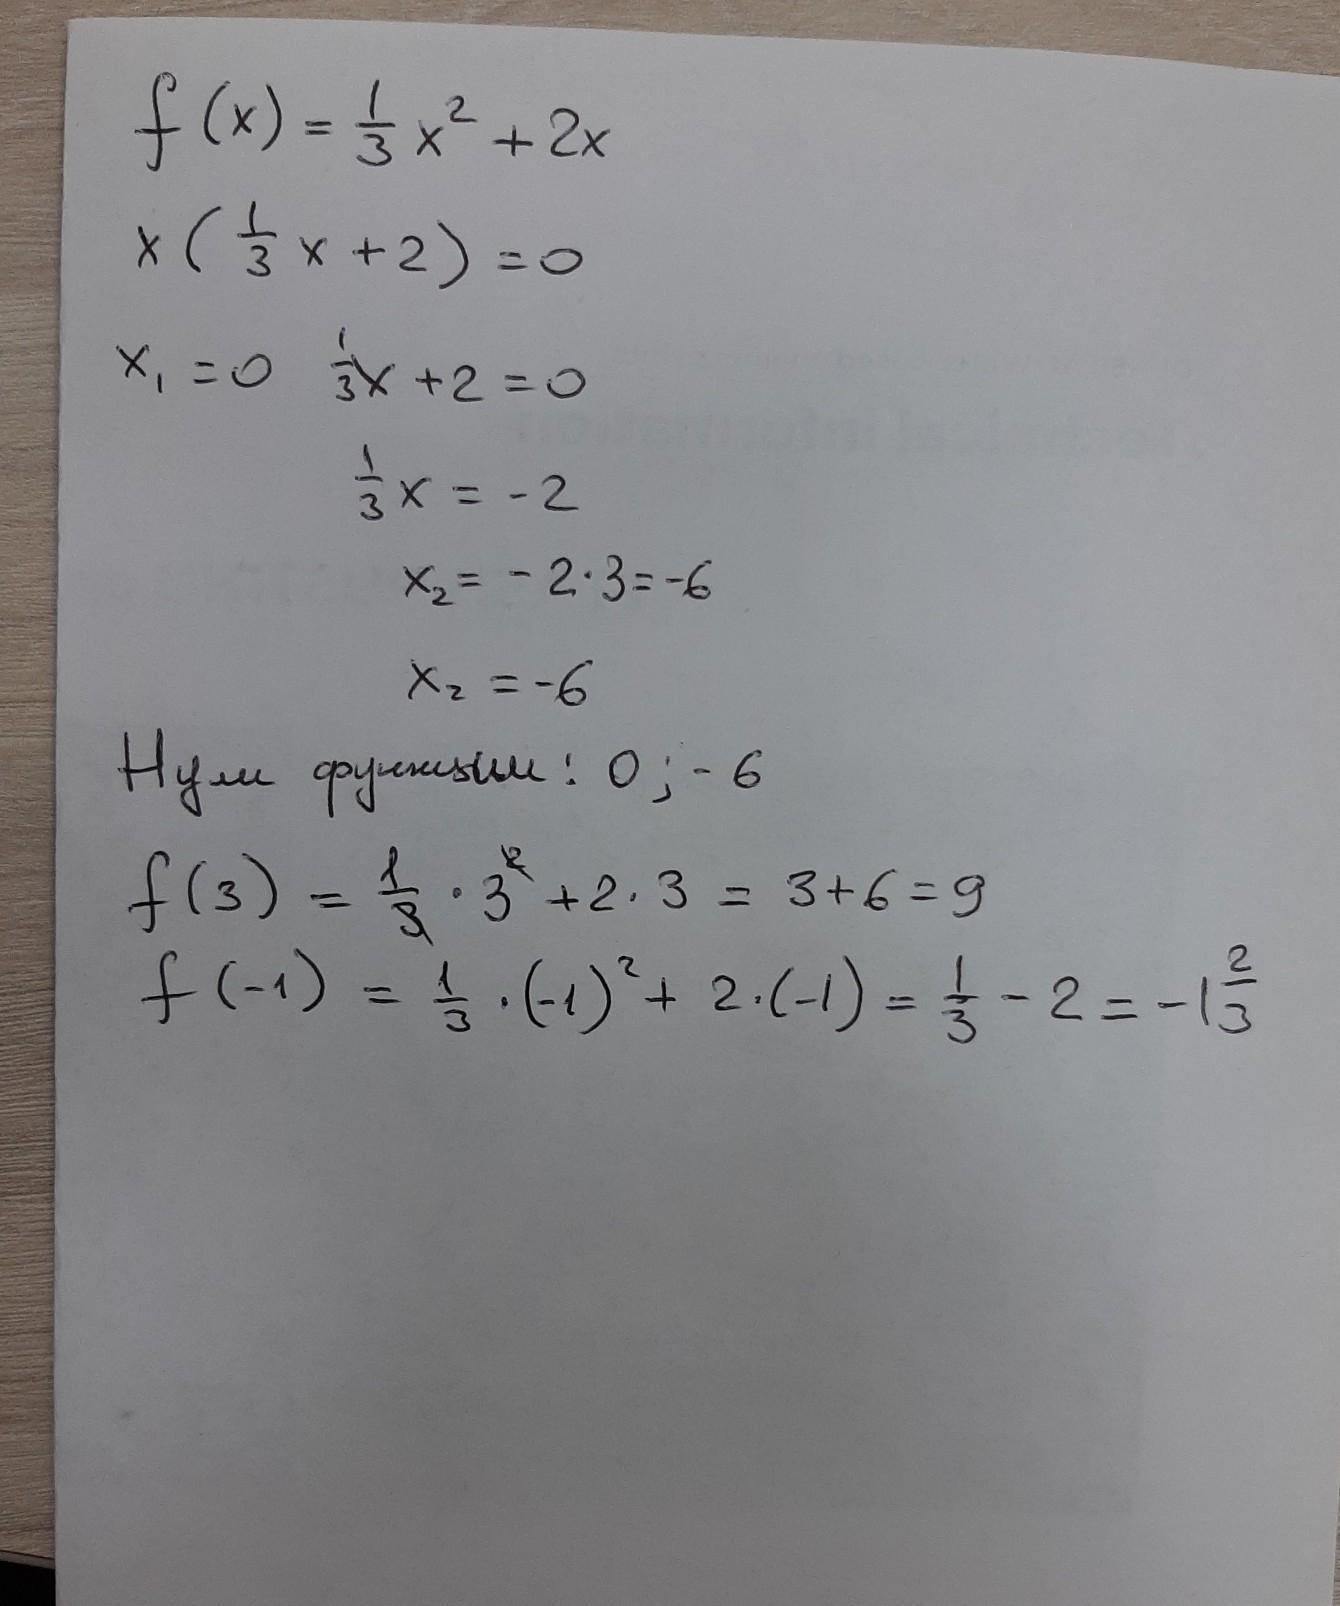 f(x) = 1/3 x² + 2x
x(1/3 x + 2) = 0
x₁ = 0 1/3 x + 2 = 0
1/3 x = -2
x₂ = -2·3 = -6
x₂ = -6
Нули функции: 0; -6
f(3) = 1/3 · 3² + 2·3 = 3+6 = 9
f(-1) = 1/3 · (-1)² + 2·(-1) = 1/3 - 2 = -1 2/3